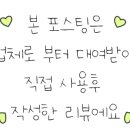 본 포스팅은
업체로 부터 대여받아
직접 사용후
작성한 리뷰에요